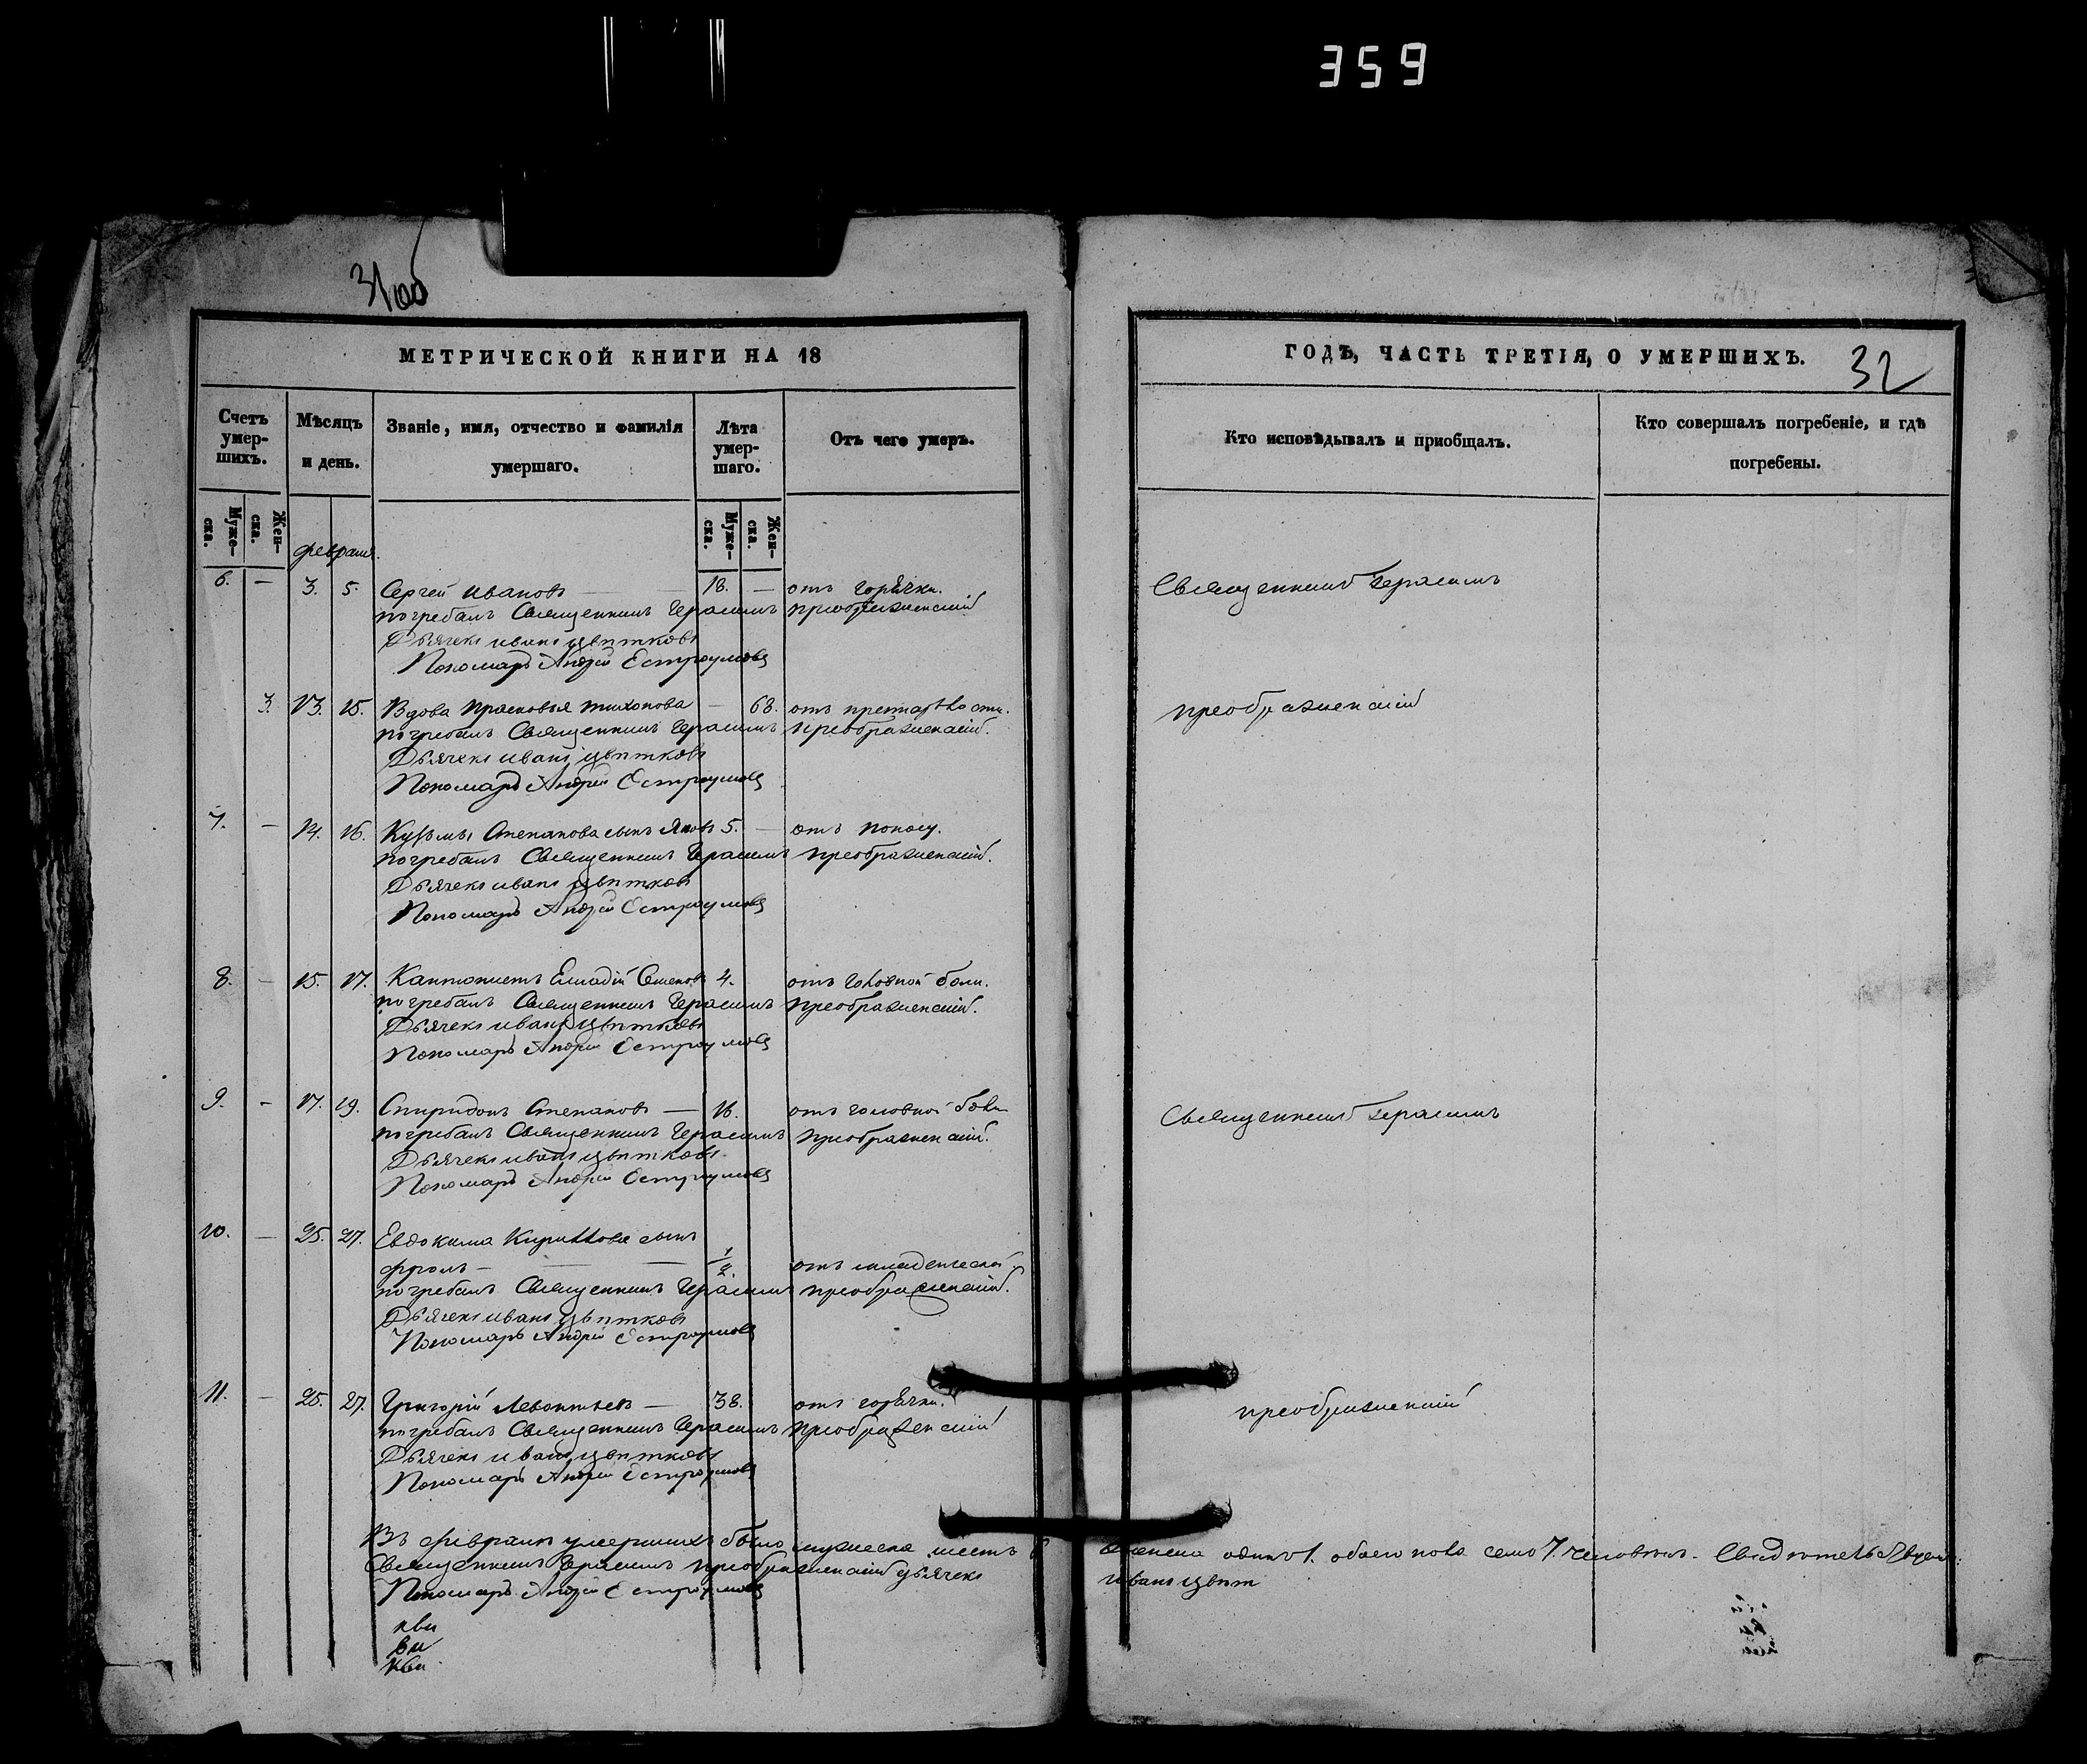 359
31об
МЕТРИЧЕСКОЙ КНИГИ НА 18
Счетъ умер-шихъ.
Мѣсяцъ и день.
Званіе, имя, отчество и фамилія умершаго.
Лѣта умер-шаго.
Отъ чего умеръ.
Муже-ска.
Жен-ска.
Муже-ска.
Жен-ска.
февраля.
6. — 3. 5. Сергей Ивановъ 18. — отъ горячки.
погребалъ Священникъ Герасимъ Преображенскій
Дьячекъ иванъ цвѣтковъ
Пономарь Андрей Остроумовъ
3. 13. 15. Вдова Прасковья Тихонова — 68. отъ престарѣлости.
погребалъ Священникъ Герасимъ Преображенскій.
Дьячекъ иванъ цвѣтковъ
Пономарь Андрей Остроумовъ
7. — 14. 16. Кузьмы Степанова сынъ Яковъ 5. — отъ поносу.
погребалъ Священникъ Герасимъ Преображенскій.
Дьячекъ иванъ цвѣтковъ
Пономарь Андрей Остроумовъ
8. — 15. 17. Кантонистъ Семеновъ 4. отъ головной боли.
погребалъ Священникъ Герасимъ Преображенскій.
Дьячекъ иванъ цвѣтковъ
Пономарь Андрей Остроумовъ
9. — 17. 19. Спиридонъ Степановъ — 16. отъ головной боли
погребалъ Священникъ Герасимъ Преображенскій.
Дьячекъ иванъ цвѣтковъ
Пономарь Андрей Остроумовъ
10. — 25. 27. Евдокима Кирилова сынъ
фролъ — 1/2. отъ младенческой
погребалъ Священникъ Герасимъ преображенскій.
Дьячекъ иванъ цвѣтковъ
Пономарь Андрей Остроумовъ
11. — 25. 27. Григорій Леонтьевъ — 38. отъ горячки.
погребалъ Священникъ Герасимъ Преображенскій
Дьячекъ иванъ цвѣтковъ
Пономарь Андрей Остроумовъ
Въ февралѣ умершихъ было мужеска шесть 6
Священникъ Герасимъ преображенскій дьячекъ
Пономарь Андрей Остроумовъ
ГОДЪ, ЧАСТЬ ТРЕТІЯ, О УМЕРШИХЪ.
32
Кто исповѣдывалъ и пріобщалъ.
Кто совершалъ погребеніе, и гдѣ погребены.
Священникъ Герасимъ
преображенскій
Священникъ Герасимъ
преображенскій
женска одинъ 1. обоего пола семь 7. человѣкъ.
иванъ цвѣт